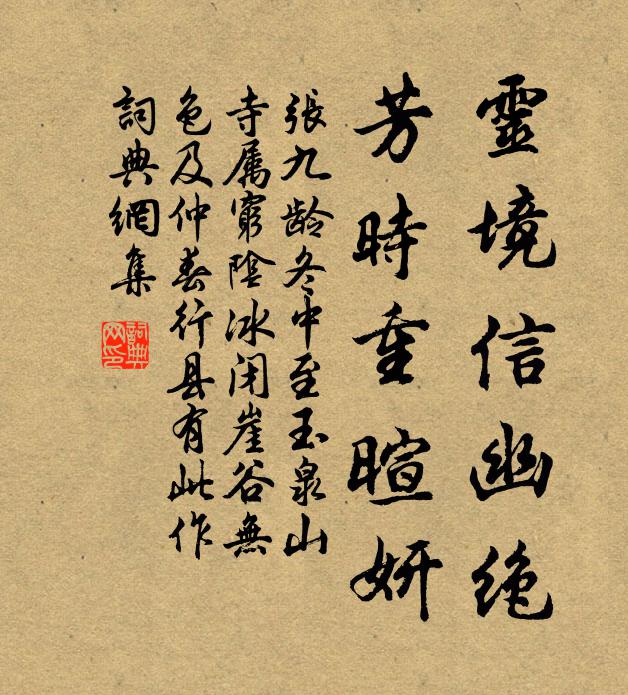 靈境信幽絶
芳時重暄妍
張九龄冬中至玉泉山
寺属窮陰冰闭崖谷無
色及仲春行县有此作
詞典網集
詞典网印